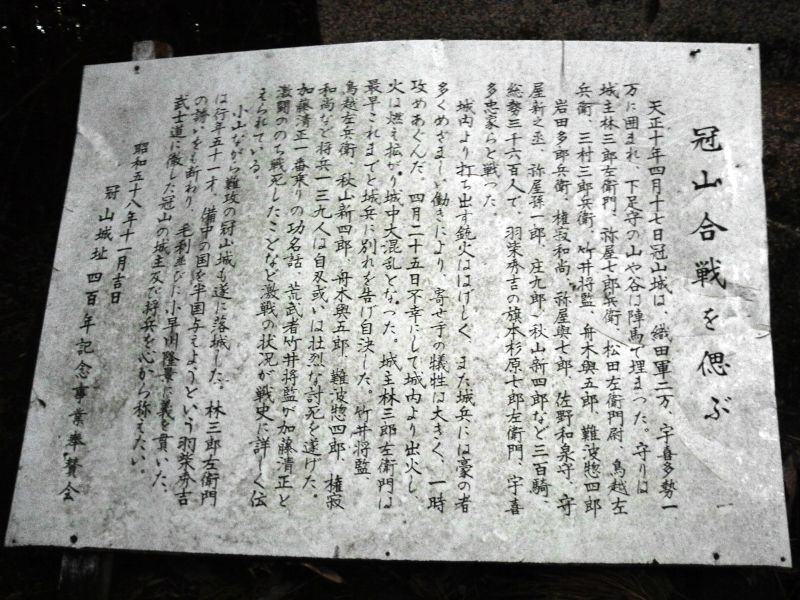 冠山合戦を偲ぶ
天正十年四月十七日冠山城は、織田軍二万、宇喜多勢一
万に囲まれ、下足守の山や谷は陣馬で埋まつた。守りは
城主林三郎左衛門、弥屋七郎兵衛、松田左衛門尉、鳥越左
兵衛、三村三郎兵衛、竹井将監、舟木與五郎、難波惣四郎
岩田多郎兵衛、権寂和尚、弥屋與七郎、佐野和泉守、守
屋新之丞、弥屋孫一郎、庄九郎、秋山新四郎など三百騎、
総勢三千六百人で、羽柴秀吉の旗本杉原七郎左衛門、宇喜
多忠家らと戦つた。
城内より打ち出す銃火ははげしく、また城兵には豪の者
多くめざましい働きにより、寄せ手の犠牲は大きく、一時
攻めあぐんだ。四月二十五日不幸にして城内より出火し、
火は燃え拡がり城中大混乱となつた。城主林三郎左衛門は
最早これまでと城兵に別れを告げ自決した。竹井将監、
鳥越左兵衛、秋山新四郎、舟木與五郎、難波惣四郎、権寂
和尚など将兵一三九人は自刃或いは壮烈な討死を遂げた。
加藤清正一番乗りの功名話、荒武者竹井将監が加藤清正と
激闘ののち戦死したことなど激戦の状況が戦史に詳しく伝
えられている。
小山ながら難攻の冠山城も遂に落城した。林三郎左衛門
は行年五十一才、備中の国を半国与えようという羽柴秀吉
の誘いをも断わり、毛利並びに小早川隆景に義を貫いた、
武士道に徹した冠山の城主及び将兵を心から称えたい。
昭和五十八年十一月吉日
冠山城址四百年記念事業奉賛会